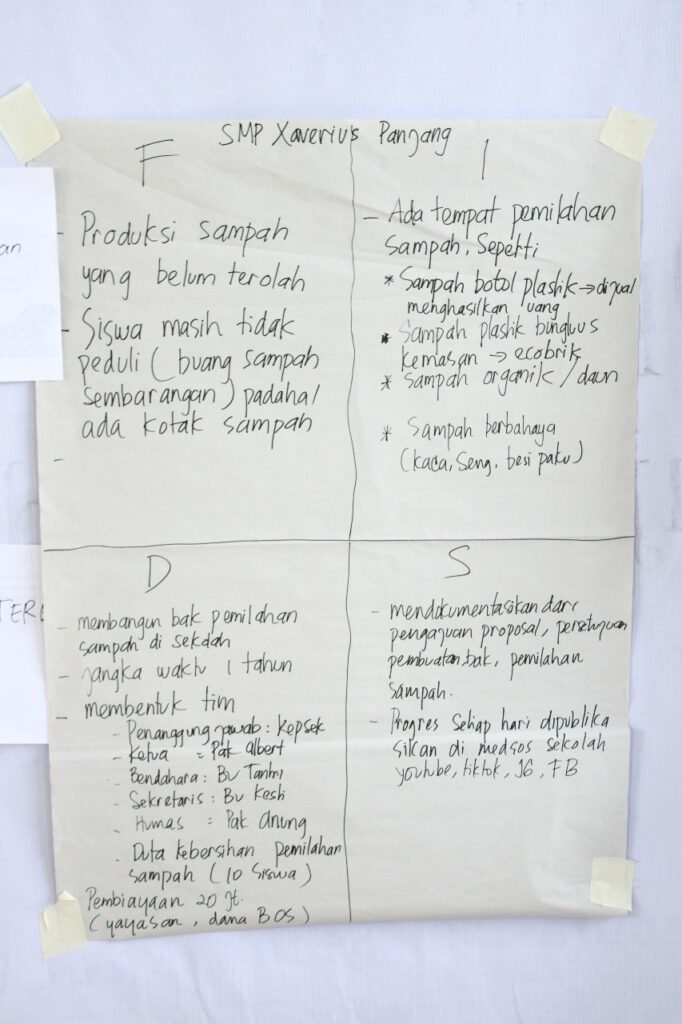 SMP Xaverius Panjang
F
- Produksi sampah
yang belum terolah
- Siswa masih tidak
peduli (buang sampah
sembarangan) padahal
ada kotak sampah
-
I
- Ada tempat pemilahan
sampah, Seperti
* Sampah botol plastik → dijual
menghasilkan uang
* Sampah plastik bungkus
kemasan → ecobrik
* Sampah organik / daun
* Sampah berbahaya
(kaca, Seng, besi paku)
D
- membangun bak pemilahan
sampah di sekolah
- jangka waktu 1 tahun
- membentuk tim
- Penanggung jawab : Kepsek
- Ketua = Pak Albert
- Bendahara : Bu Tantri
- Sekretaris : Bu Kesti
- Humas = Pak Anung
- Duta kebersihan pemilahan
sampah (10 Siswa)
Pembiayaan 20 Jt.
(yayasan, dana BOS)
S
- mendokumentasikan dari
pengajuan proposal, persetujuan
pembuatan bak, pemilahan
sampah.
- Progres setiap hari dipublika
sikan di medsos sekolah
youtube, tiktok, IG, FB
an
TERE